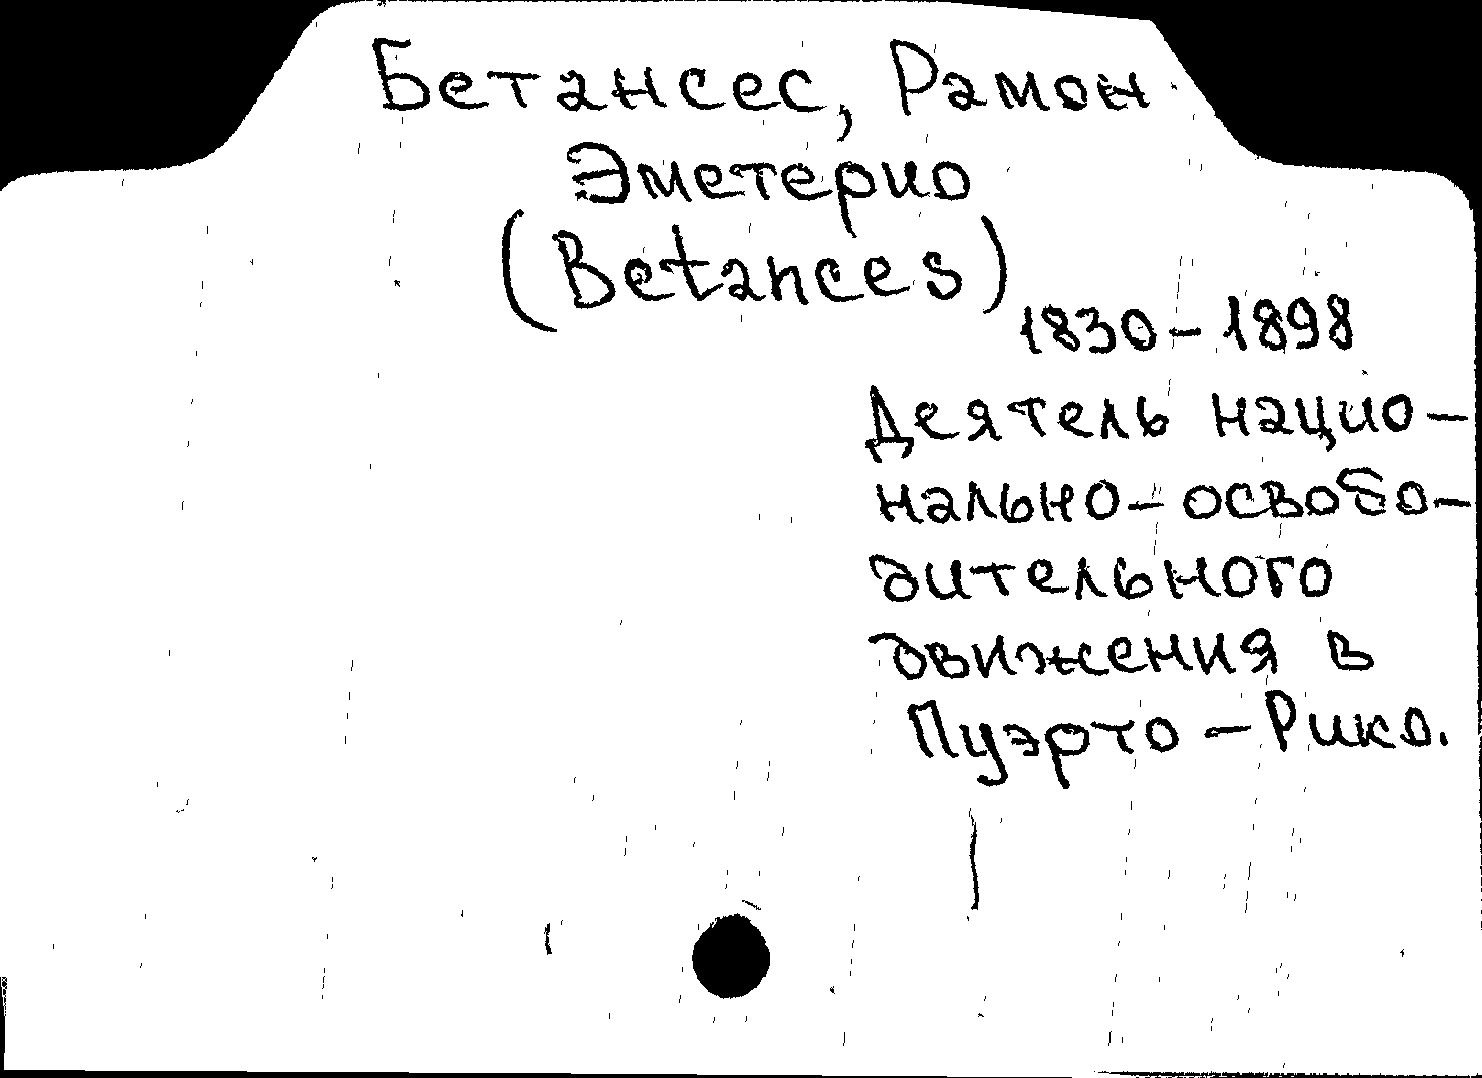 Бетансес, Рамон
Эметерио
(Betances)
1830-1898
Деятель нацио-
нально-освобо-
дительного
движения в
Пуэрто-Рико.